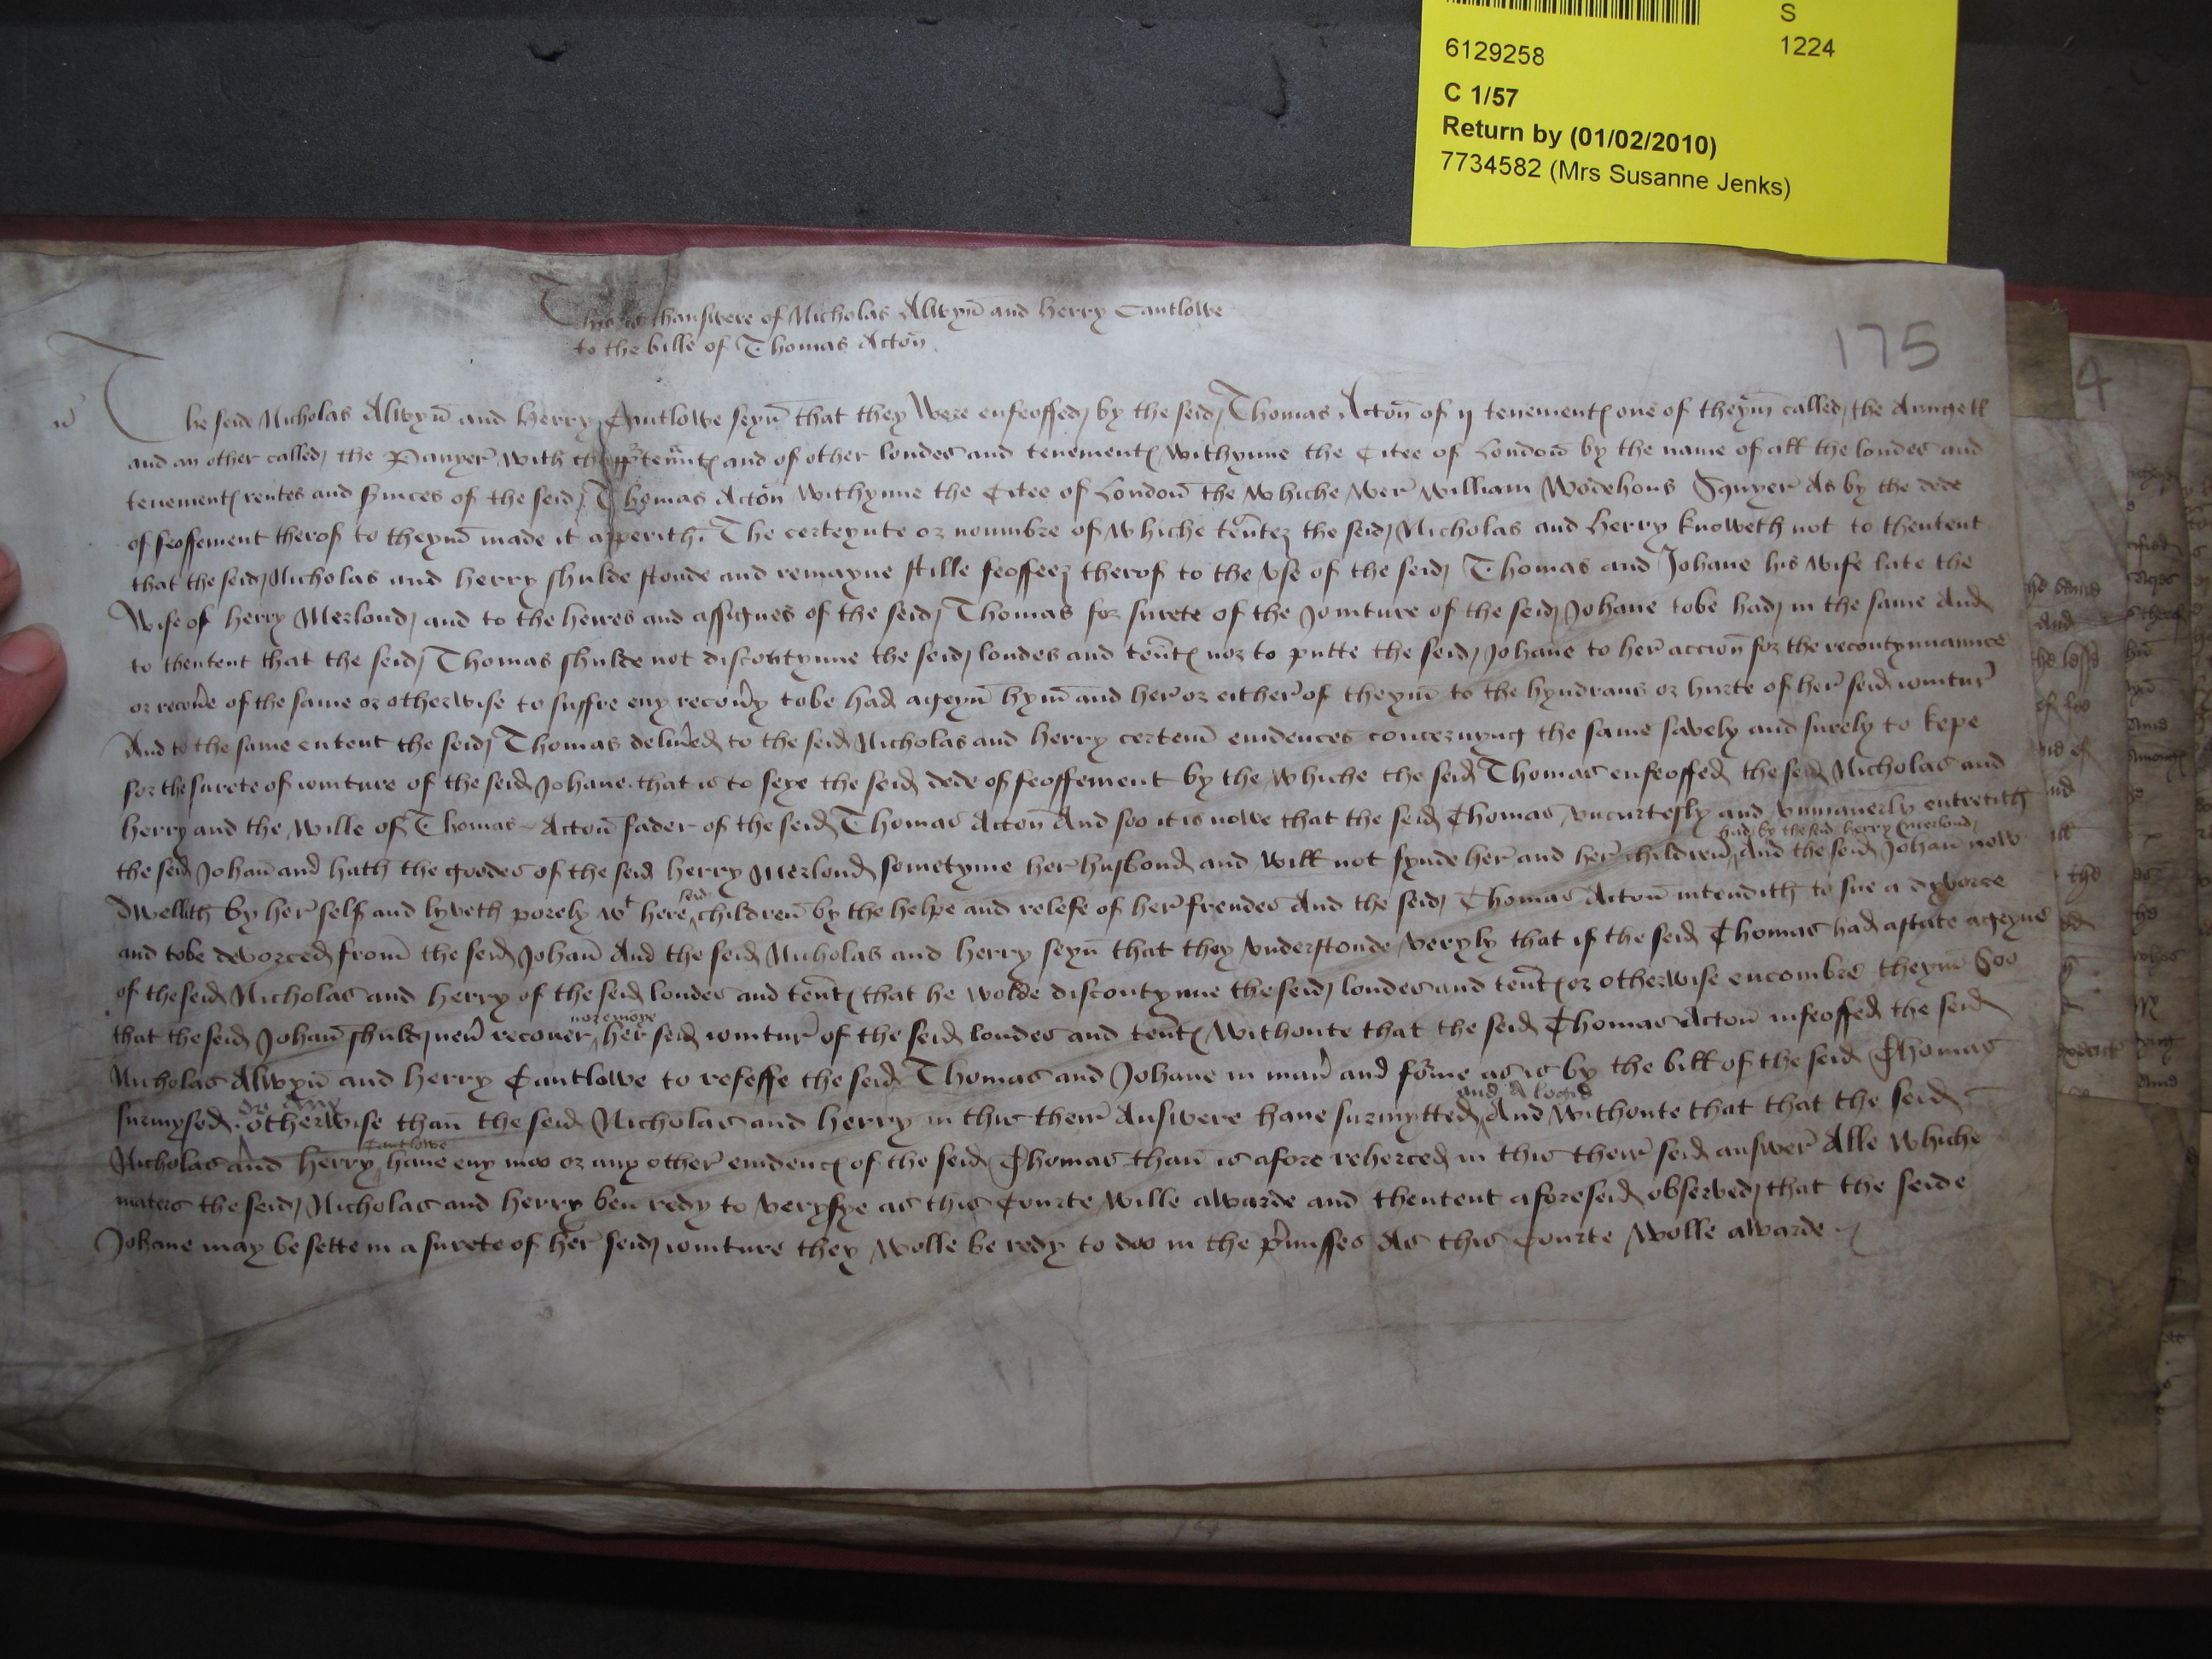 S
6129258
1224
C 1/57
Return by (01/02/2010)
7734582 (Mrs Susanne Jenks)
175
4
This is thanswere of Nicholas Alwyn and Herry Cantlowe
to the bille of Thomas Acton
The seide Nicholas Alwyn and Herry Cantlowe seyn that they were enfeoffed by the seid Thomas Acton of ij tenement one of theym called the Aungell
and an other called the Panyer with and of other londes and tenement withynne the Citee of London by the name of all the londes and
tenement rentes and svices of the seid Thomas Acton withynne the Citee of London the whiche wer William Wodehous Squyer As by the dede
of feoffement therof to theym made it apperith. The certeynte or noumbre of whiche tentez the seid Nicholas and Herry knoweth not to thentent
that the seid Nicholas and Herry shulde stonde and remayne stille feoffeez therof to the vse of the seid Thomas and Johane his wife late the
Wife of Herry Merlond and to the heires and assignes of the seid Thomas for surete of the Jointure of the seid Johane tobe had in the same And
to thentent that the seid Thomas shulde not discontynue the seid londes and tent nor to putte the seid Johane to her accion for the recontynuaunce
or recove of the same or otherwise to suffre eny recovy tobe had ageyn hym and her or either of theym to the hyndrans or hurte of her seid iointur
And to the same entent the seid Thomas delived to the seid Nicholas and Herry certein euidences concernyng the same savely and surely to kepe
for the surete of iointure of the seid Johane that is to seye the seid dede of feoffement by the whiche the seid Thomas enfeoffed the seid Nicholas and
Herry and the Wille of Thomas Acton fader of the seid Thomas Acton And soo it is nowe that the seid Thomas vncurtesly and vnmanerly entretith
had by the seid Herry Merlond
the seid Johan and hath the goodes of the seid Herry Merlond sometyme her husbond and will not fynde her and her children And the seid Johan now
seid
Dwellith by her self and lyveth porely wt here children by the helpe and relefe of her frendes And the seid Thomas Acton intendith to sue a dyvorce
and tobe devorced from the seid Johan And the seid Nicholas and Herry seyn that they vnderstonde veryly that if the seid Thomas had astate ageyne
of the seid Nicholas and Herry of the seid londes and tent that he wolde discontynue the seid londes and tent or otherwise encombre theym Soo
nor emoye
that the seid Johan shuld nev recouer her seid iointur of the seid londes and tent Withoute that the seid Thomas Acton infeoffed the seid
Nicholas Alwyn and Herry Cantlowe to refeffe the seid Thomas and Johane in man and forme as is by the bill of the seid Thomas
or eny and Alogid
surmysed otherwise than the seid Nicholas and Herry in this their Answere haue surmytted And Withoute that that the seid
Cantlowe
Nicholas and Herry haue eny moo or any other euidenc of the seid Thomas than is afore reherced in this their seid answer Alle whiche
maters the seid Nicholas and Herry ben redy to veryfye as this Courte wille awarde and thentent aforeseid observed that the seide
Johane may be sette in a surete of her seid iointure they wolle be redy to doo in the pmisses As this Courte wolle awarde